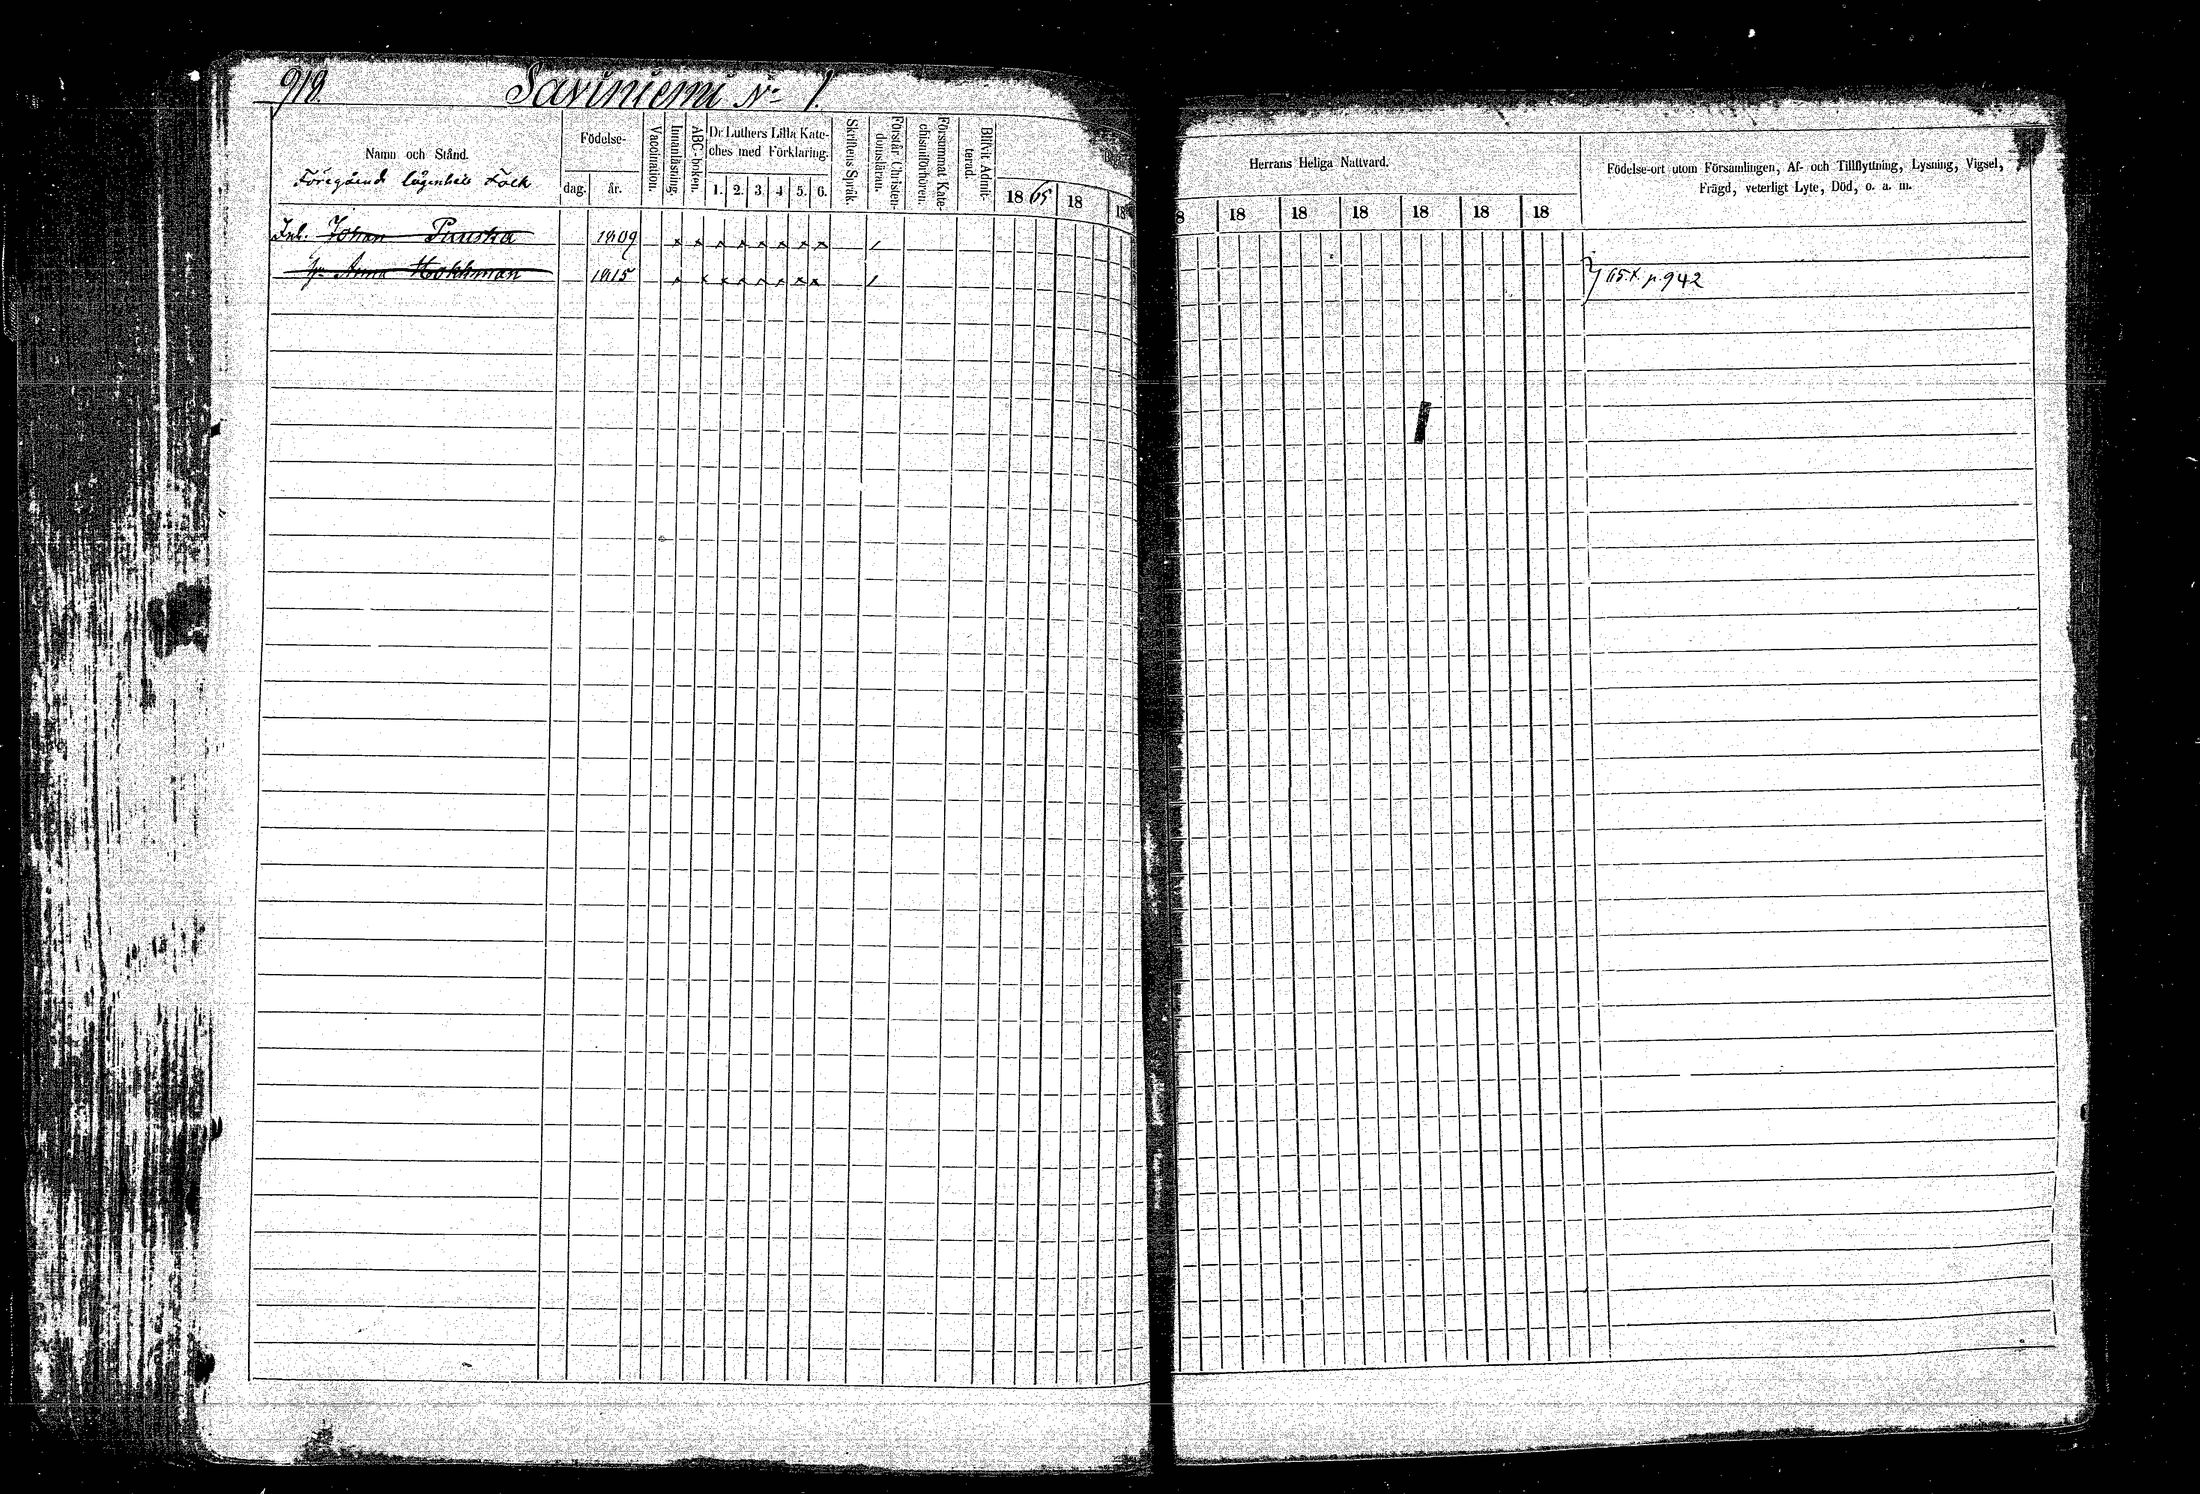 918.
Saviniemi No 1.
Namn och Stånd.
Föregående lägenhets Folk
Födelse-
dag.
år.
Vaccination.
Innanläsning.
ABC-boken.
Dr Luthers Lilla Kate-
ches med Förklaring.
1. 2. 3. 4 5. 6.
Skriftens Språk.
Förstår Christen-
domsläran.
Försummat Kate-
chismiförhören.
Blifvit Admit-
terad.
18 65 18 18
Inh. Johan Puuska 1809 x x x x x x x x /
h. Anna Hokkman 1815 x x x x x x x x /
Herrans Heliga Nattvard.
8 18 18 18 18 18 18
Födelse-ort utom Församlingen, Af- och Tillflyttning, Lysning, Vigsel,
Frägd, veterligt Lyte, Död, o. a. m.
65. p. 942